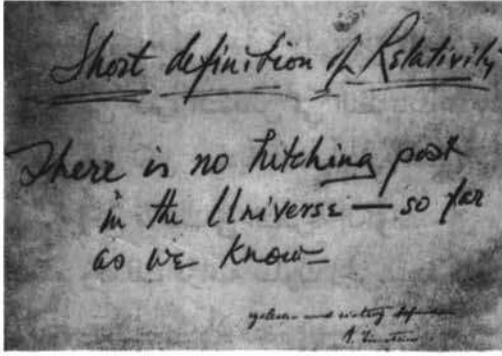 Short definition of Relativity
There is no hitching post
in the Universe — so far
as we know
and
A. Einstein